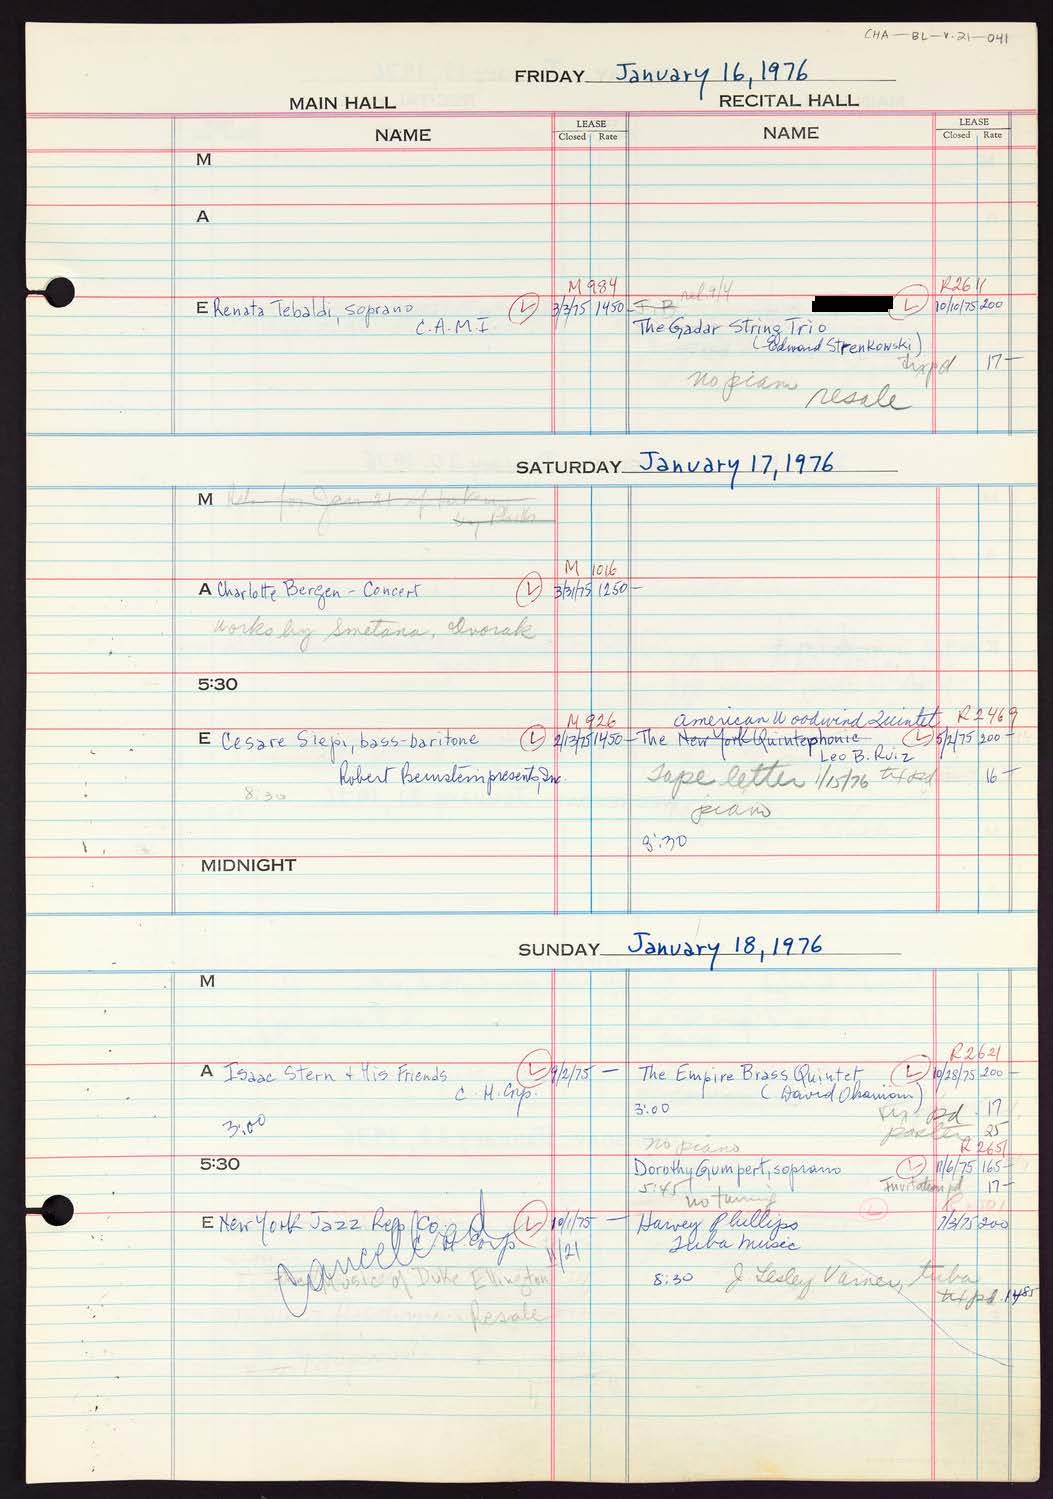 CHA-BL-V.21-041
FRIDAY January 16, 1976
MAIN HALL RECITAL HALL
NAME LEASE Closed Rate NAME LEASE Closed Rate
M
A
M 984 R2611
E Renata Tebaldi, soprano L 3/3/75 1450- I.B rel. 9/4 L 10/10/75 200
C.A.M.I The Gadar String Trio
(Edward Strenkowski)
pd 17-
no piano
resale
SATURDAY January 17, 1976
M for Jan 21 if taken
by
M 1016
A Charlotte Bergen - Concert L 3/31/75 1250-
works by Smetana, Dvorak
5:30
M 926 American Woodwind Quintet R2469
E Cesare Siepi, bass-baritone L 2/13/75 1450- The New York Quintephonic L 5/2/75 200-
Leo B. Ruiz
Robert Bernstein presents, Inc. Tape letter 1/15/76 tx pd 16-
8:30 piano
8:30
MIDNIGHT
SUNDAY January 18, 1976
M
R2621
A Isaac Stern + His Friends L 9/2/75 - The Empire Brass Quintet L 10/28/75 200-
C.H.Crp. (David Ohanian)
3:00 3:00 pd 17
25
no piano R2651
5:30 Dorothy Gumpert, soprano L 11/6/75 165-
5:45 Invitation pd 17-
no tuning
E New York Jazz Rep. Co. L 10/1/75 - Harvey Phillips 7/3/75 200
C H Corp 11/21 Tuba Music
Cancelled
Music of Duke Ellington 8:30 J Lesley Varner, tuba
tx pd. 1485
Resale